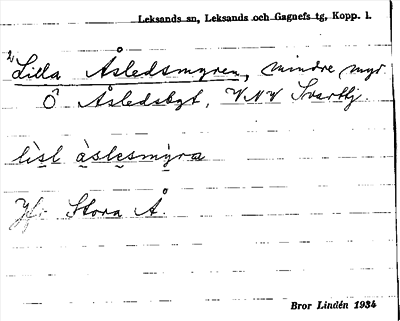 Leksands sn, Leksands och Gagnefs tg, Kopp. l.
2) Lilla Åsledsmyren, mindre myr
Ô Åsledsbyt, VNV Svarttj.
lisl åslesmýra
Jfr Stora Å.
Bror Lindén 1934